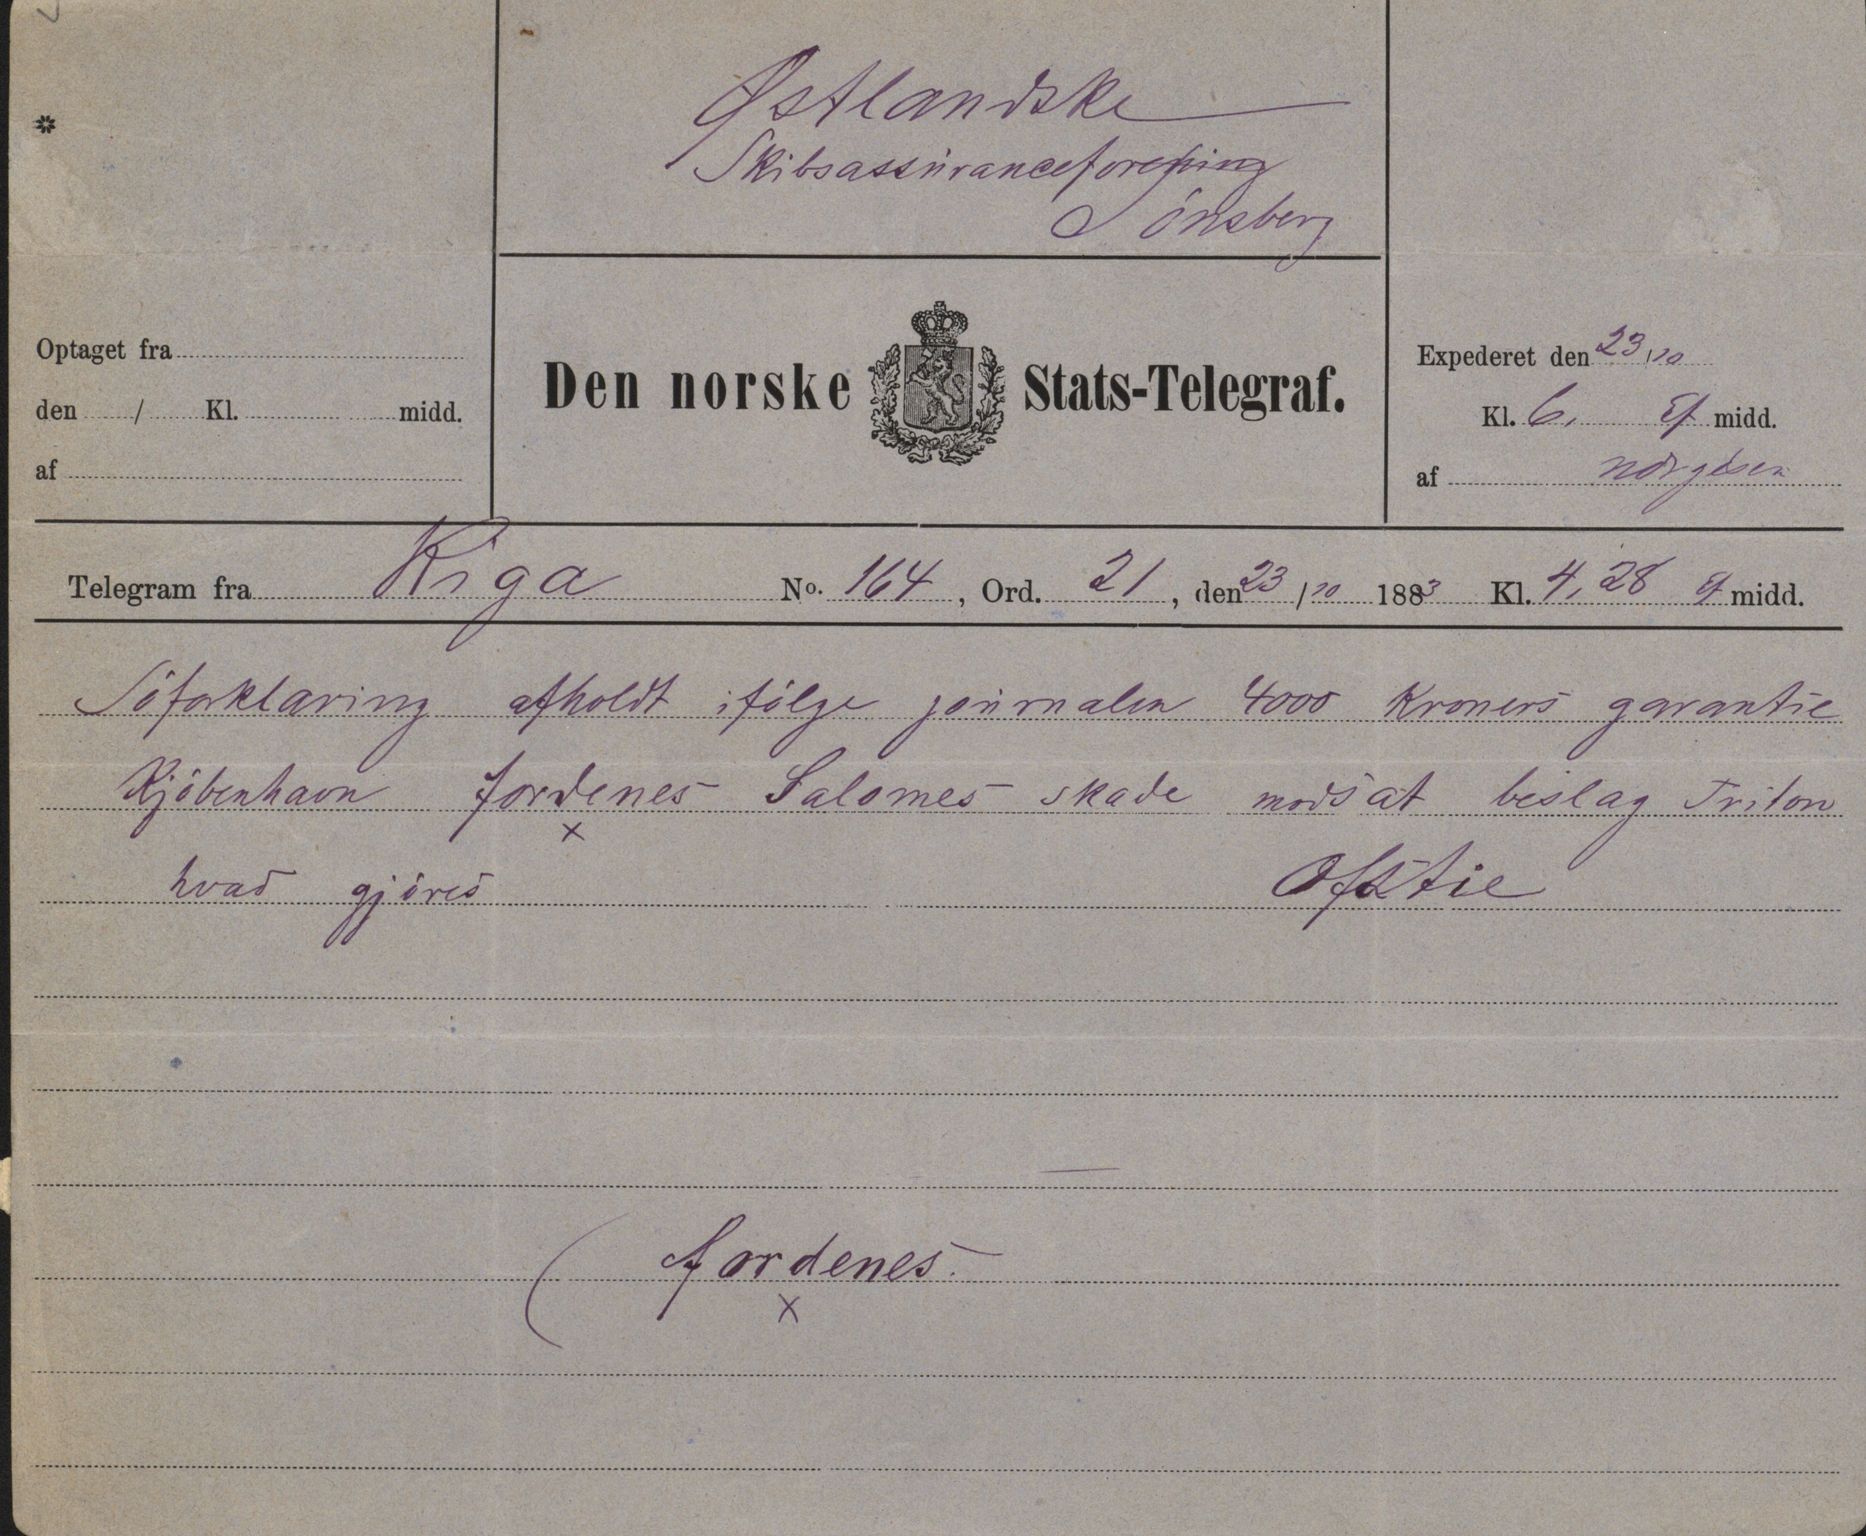 Østlandske
Skibsassuranceforening
Tønsberg
*
Optaget fra
den / Kl. midd.
af
Den norske Stats-Telegraf.
Expederet den 23/10
Kl. 6, Ef midd.
af
Telegram fra Riga No. 164, Ord. 21, den 23/10 1883 Kl. 4,28 Ef midd.
Söforklaring afholdt ifölge journalen 4000 Kroners garantie
Kjöbenhavn fordenes Salomes skade modsat beslag Triton
hvad gjöres Ofstie
( fordenes.
x